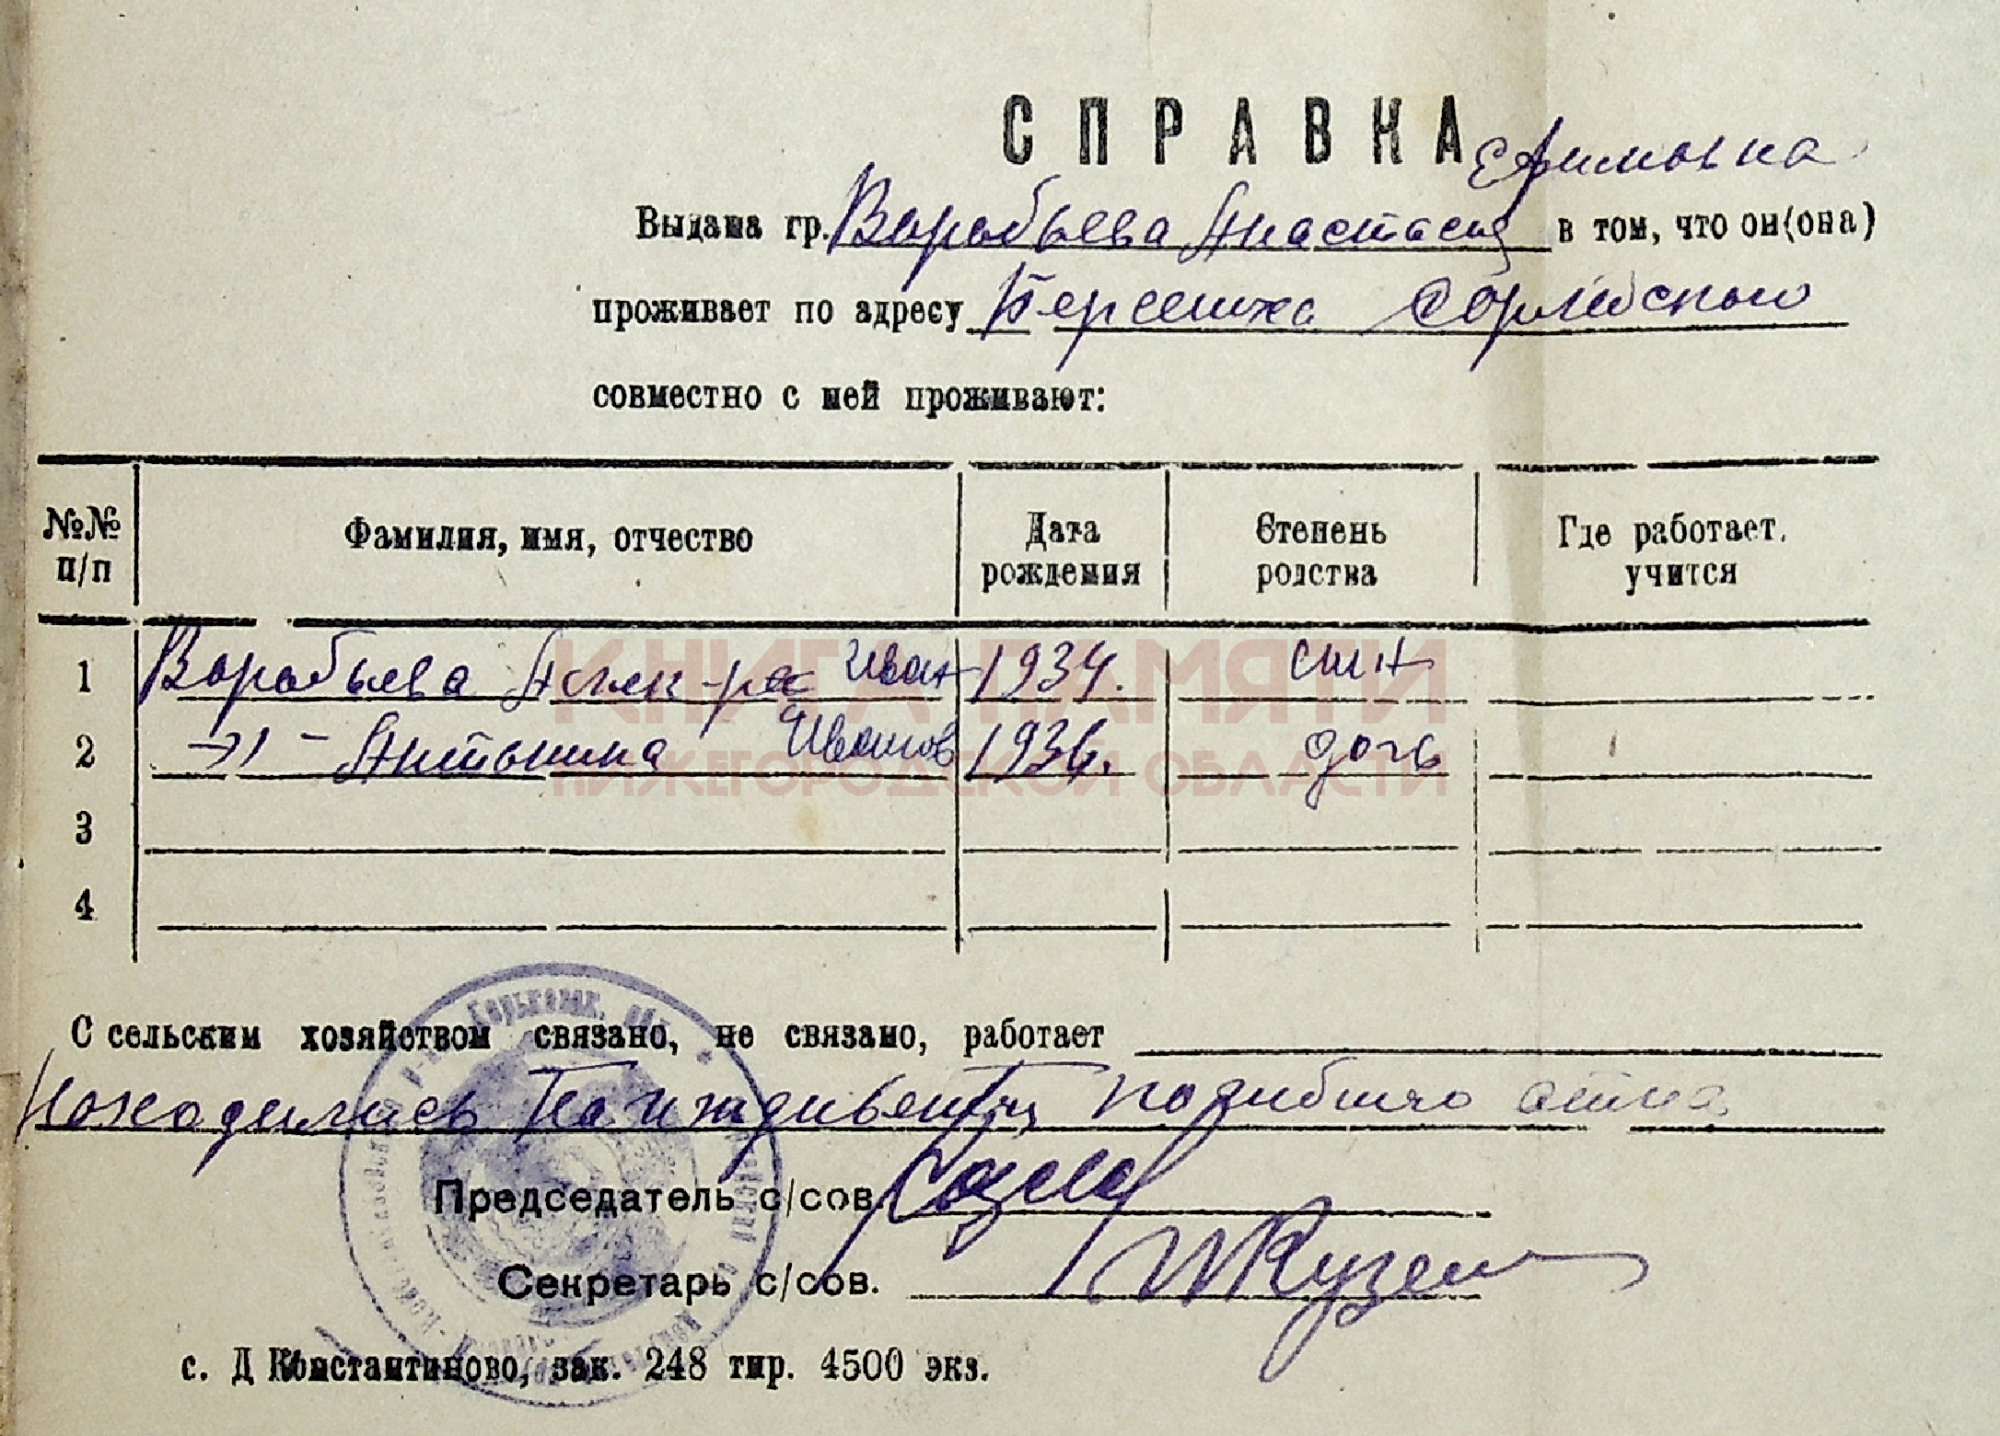 СПРАВКА
Ефимовна
Выдана гр. Воробьева Анастасия в том, что он(она)
проживает по адресу
совместно с ней проживают:
№№ п/п Фамилия, имя, отчество Дата рождения Степень родства Где работает, учится
1 Воробьева Иван 1934. сын
2 -"- Антонина Иванов 1936. дочь
3
4
КНИГА ПАМЯТИ
НИЖЕГОРОДСКОЙ ОБЛАСТИ
С сельским хозяйством связано, не связано, работает
Находились на иждивении погибшго отца
Председатель с/сов.
Секретарь с/сов.
с. Д Константиново, зак. 248 тир. 4500 экз.